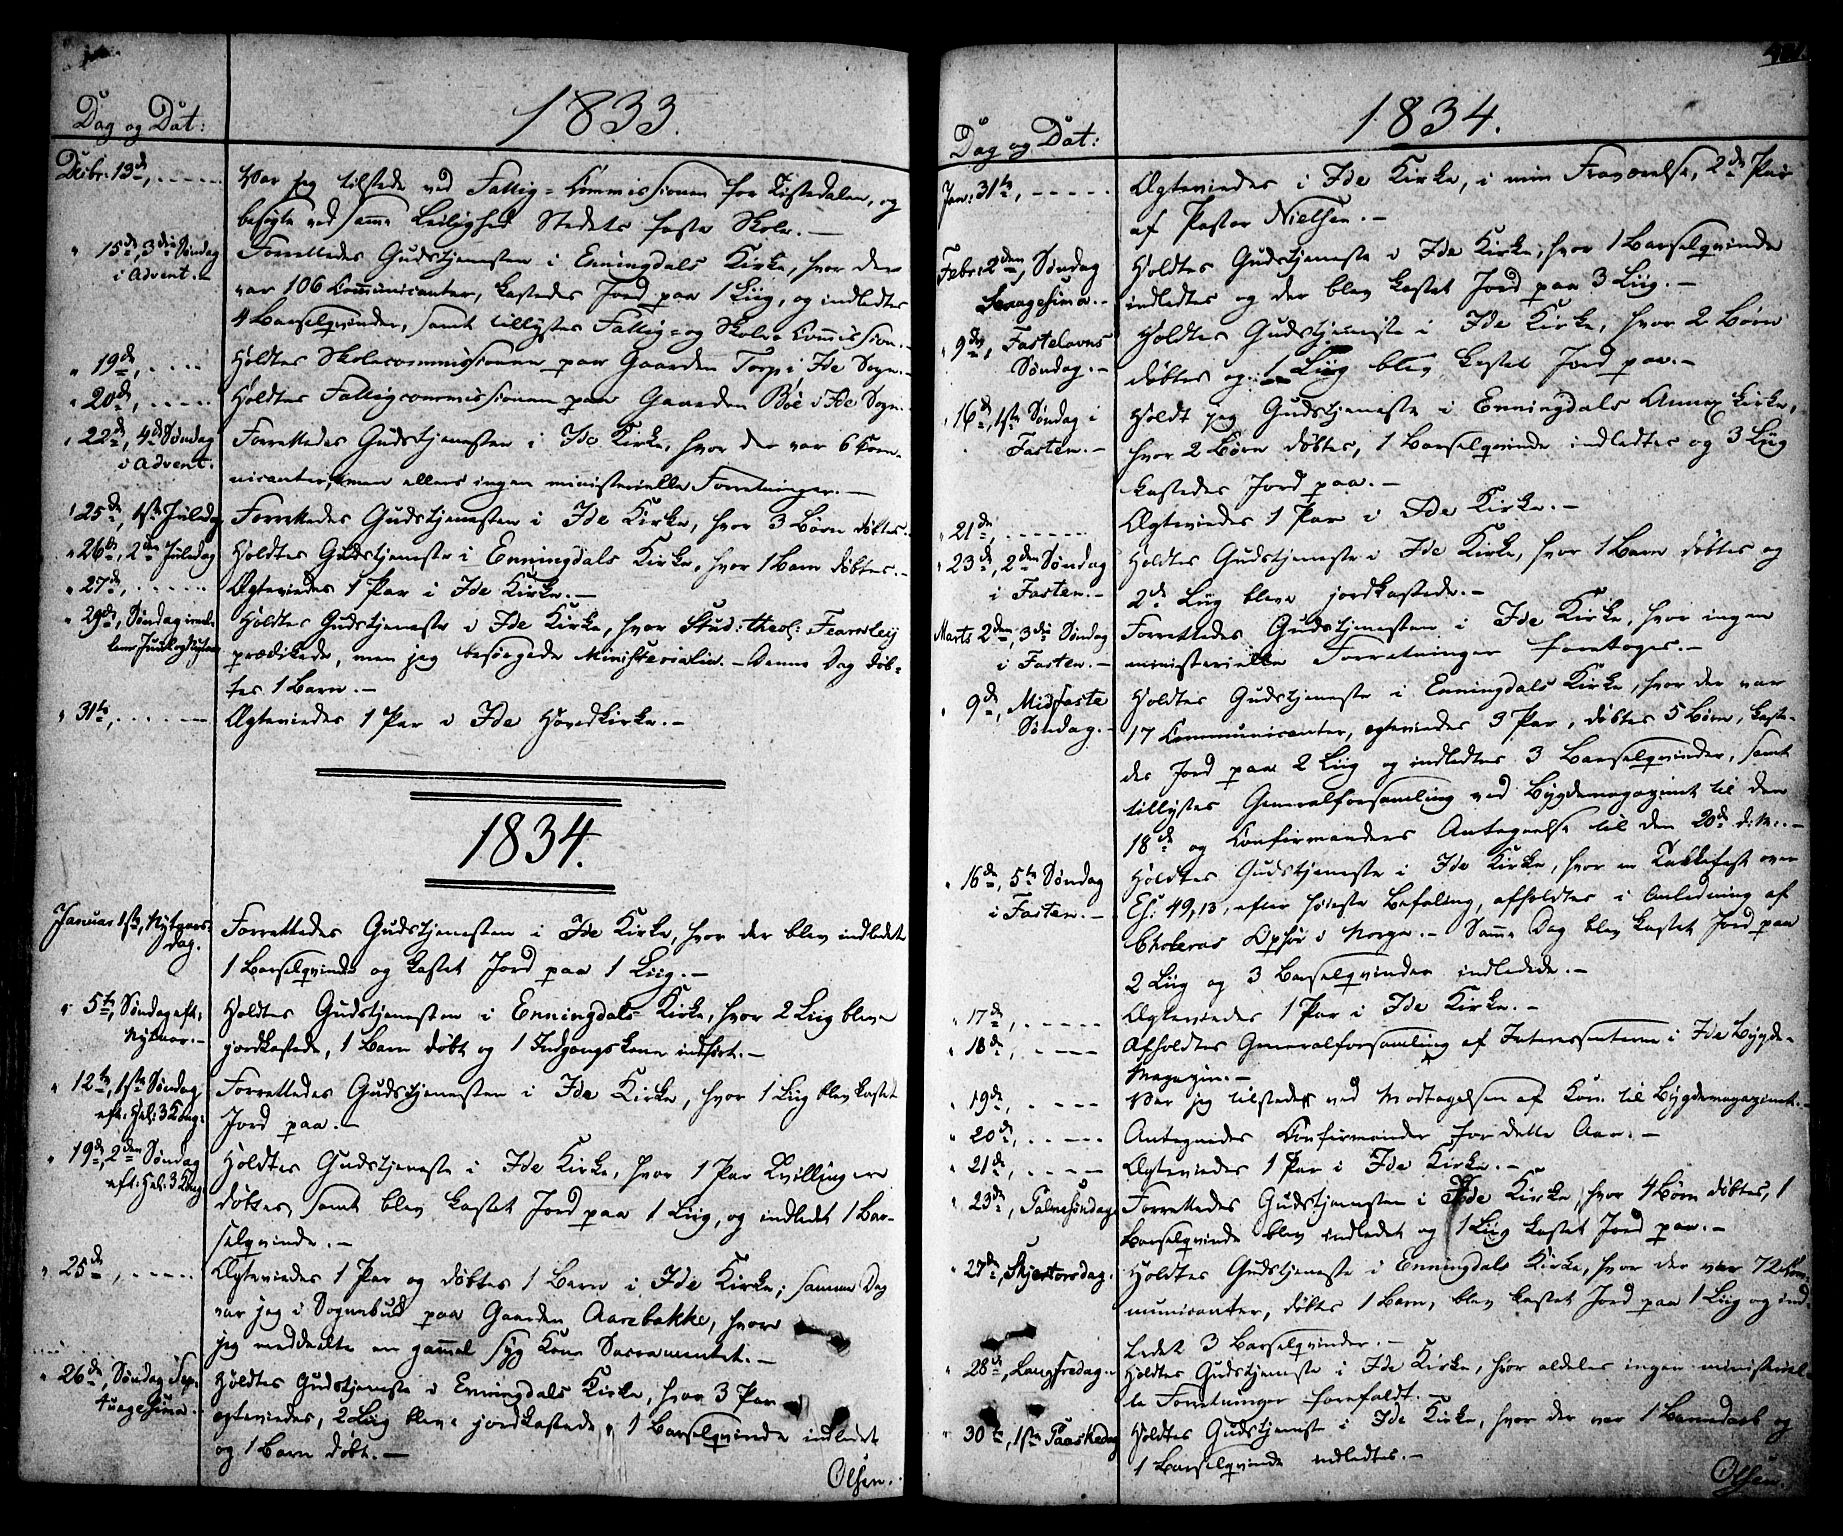 Dag og Dat:
1833.
Decbr. 13de, -----
Var jeg tilstede ved Fattig-Commissionen for Tistedalen, og
besøgte ved samme Leilighed Stedets faste Skole.—
" 15de, 3die Søndag
i Advent.—
Forrettedes Gudstjenesten i Enningdals Kirke, hvor der
var 106 Communicanter, kastedes Jord paa 1 Liig, og indledtes
4 Barselqvinder, samt tillystes Fattig- og Skole-Commission.—
" 19de, ....
Holdtes Skolecommissionen paa Gaarden Torp i Ide Sogn.—
" 20de, ....
Holdtes Fattigcommissionen paa Gaarden Bøe i Ide Sogn.
" 22de, 4de Søndag
i Advent.
Forrettedes Gudstjenesten i Ide Kirke, hvor der var 6 Com-
nicanter, men ellers ingen ministerielle Forretninger.—
" 25de, 1ste Juledag
Forrettedes Gudstjenesten i Ide Kirke, hvor 3 Børn døbtes.
" 26de, 2den Juledag
Holdtes Gudstjeneste i Enningdals Kirke, hvor 1 Barn døbtes.—
" 27de, .....
Ægteviedes 1 Par i Ide Kirke.—
" 29de, Søndag imel-
lem Juul og Nytaar
Holdtes Gudstjeneste i Ide Kirke, hvor Stud: theol: Fearnley
prædikede, men jeg besørgede Ministerialia.— Denne Dag døb-
tes 1 Barn.—
" 31te, .....
Ægteviedes 1 Par i Ide Hovedkirke.—
1834.
Januar 1ste, Nytaars
dag.
Forrettedes Gudstjenesten i Ide Kirke, hvor der blev indledet
1 Barselqvinde og kastet Jord paa 1 Liig.—
" 5te, Søndag eft:
Nytaar.—
Holdtes Gudstjenesten i Enningdals Kirke, hvor 2 Liig bleve
jordkastede, 1 Barn døbt og 1 Indgangskone indført.—
" 12te, 1ste Søndag
eft: Hel: 3 Kong:
Forrettedes Gudstjenesten i Ide Kirke, hvor 1 Liig blev kastet
Jord paa.—
" 19de, 2den Søndag
eft: Hel: 3 Kong:
Holdtes Gudstjeneste i Ide Kirke, hvor 1 Par Tvillinger
døbtes, samt blev kastet Jord paa 1 Liig, og indledt 1 Bar-
selqvinde.—
" 25de, -----
Ægteviedes 1 Par og døbtes 1 Barn i Ide Kirke; samme Dag
var jeg i Sognebud paa Gaarden Aarebakke, hvor
jeg meddeelte en gammel syg Kone Sacramentet.—
" 26de, Søndag Sep-
tuagesima.—
Holdtes Gudstjeneste i Enningdals Kirke, hvor 3 Par
ægteviedes, 2 Liig bleve jordkastede, 1 Barselqvinde indledet
og 1 Barn døbt.—
Olsen.
Dag og Dat:
1834.
Jan: 31te, -----
Ægteviedes i Ide Kirke, i min Fraværelse, 2de Par
af Pastor Nielsen.—
Febr: 2den, Søndag
Sexagesima.—
Holdtes Gudstjeneste i Ide Kirke, hvor 1 Barselqvinde
indledtes og der blev kastet Jord paa 3 Liig.—
" 9de, Fastelavns
Søndag.—
Holdtes Gudstjeneste i Ide Kirke, hvor 2 Børn
døbtes og 1 Liig blev kastet Jord paa.—
" 16de, 1ste Søndag i
Fasten.—
Holdt jeg Gudstjeneste i Enningdals Annex Kirke,
hvor 2 Børn døbtes, 1 Barselqvinde indledtes og 3 Liig
kastedes Jord paa.—
" 21de, ......
Ægteviedes 1 Par i Ide Kirke.—
" 23de, 2den Søndag
i Fasten.—
Holdtes Gudstjeneste i Ide Kirke, hvor 1 Barn døbtes og
2de Liig bleve jordkastede.—
Marts 2den, 3die Søndag
i Fasten.—
Forrettedes Gudstjenesten i Ide Kirke, hvor ingen
ministerielle Forretninger foretoges.—
" 9de, Midfaste
Søndag.—
Holdtes Gudstjeneste i Enningdals Kirke, hvor der var
17 Communicanter, ægteviedes 3 Par, døbtes 5 Børn, kaste-
des Jord paa 2 Liig og indledtes 3 Barselqvinder, samt
tillystes Generalforsamling ved Bygdemagazinet til den
18de og Confirmanders Antegnelse til den 20de d: M:.—
" 16de, 5te Søndag
i Fasten.—
Holdtes Gudstjeneste i Ide Kirke, hvor en Takkefest over
Es: 49,13, efter høieste Befaling, afholdtes i Anledning af
Choleras Ophør i Norge.— Samme Dag blev kastet Jord paa
2 Liig og 3 Barselqvinder indledede.—
" 17de, .....
Ægteviedes 1 Par i Ide Kirke.—
" 18de, .....
Afholdtes Generalforsamling af Interessenterne i Ide Bygde-
Magazin.—
" 19de, .....
Var jeg tilstede ved Modtagelsen af Korn til Bygdemagazinet.—
" 20de, .....
Antegnedes Confirmander for dette Aar.—
" 21de, .....
Ægteviedes 1 Par i Ide Kirke.—
" 23de, Palmesøndag.
Forrettedes Gudstjenesten i Ide Kirke, hvor 4 Børn døbtes, 1
Barselqvinde blev indledet og 1 Liig kastet Jord paa.—
" 27de, Skjertorsdag.
Holdtes Gudstjeneste i Enningdals Kirke, hvor der var 72 Com-
municanter, døbtes 1 Barn, blev kastet Jord paa 1 Liig og ind-
ledet 3 Barselqvinder.—
" 28de, Langfredag.
Holdtes Gudstjeneste i Ide Kirke, hvor aldeles ingen ministeriel-
le Forretninger forefaldt.—
" 30te, 1ste Paaskedag
Holdtes Gudstjenest i Ide Kirke, hvor der var 1 Barnedaab og
1 Barselqvinde indledtes.—
Olsen.